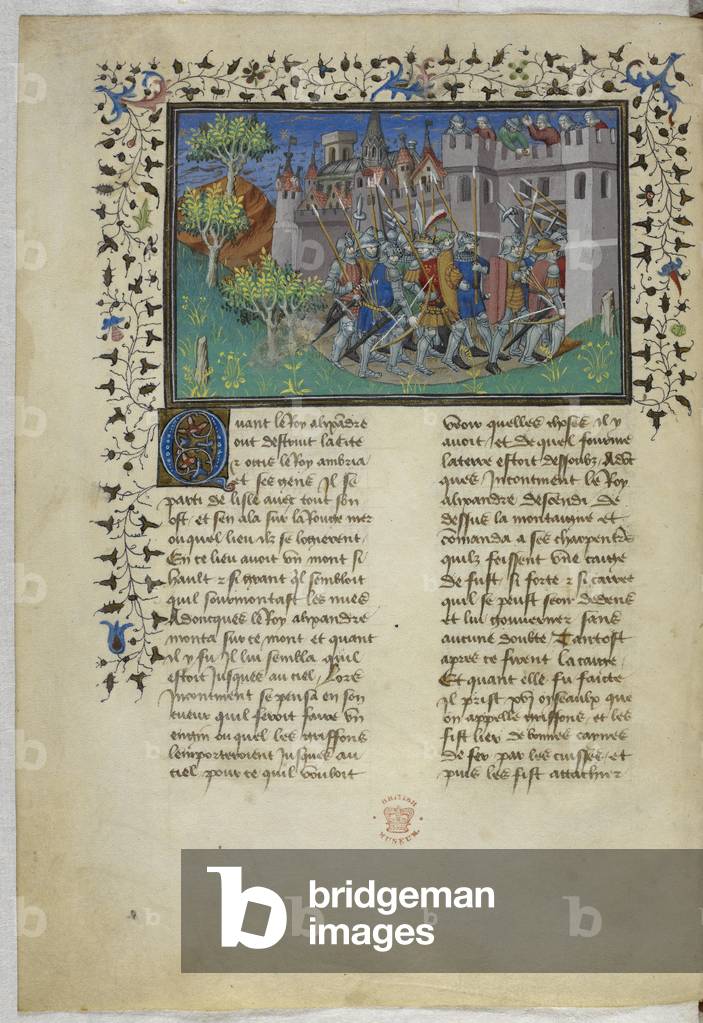 Quant le Roy alixandre
out destruit la cite
& occis le Roy ambria
et ses gens Il se
parti de lisle avec tout son
ost / et sen ala sur la Rouge mer
ouquel lieu ilz se logerent
En ce lieu avoit vn mont si
hault & si grant quil sembloit
quil sourmontast les nues
Adoncques le Roy alixandre
monta sur ce mont et quant
il y fu Il lui sembla quil
estoit Jusques au ciel / Lors
Incontinent se pensa en son
cueur quil feroit faire vn
engin ouquel les griffons
lemporteroient Jusques au
ciel pour ce quil vouloit
veoir quelles choses il y
avoit / et de quel fourme
la terre estoit dessoubz / Adōc
ques Incontinent le Roy
alixandre descendi de
dessus la montaigne et
cōmanda a ses charpentrs
quilz feissent vne caige
de fust / si forte & si carree
quil se peust seoir dedens
et lui gouverner sans
aucune doubte / Tantost
apres ce firent la caige
Et quant elle fu faicte
Il prist xvj oiseaulx que
on appelle griffons / et les
fist lier de bonnes
de fer par les cuisses / et
puis les fist attachier
BRITISH
MUSEUM
bridgeman
images